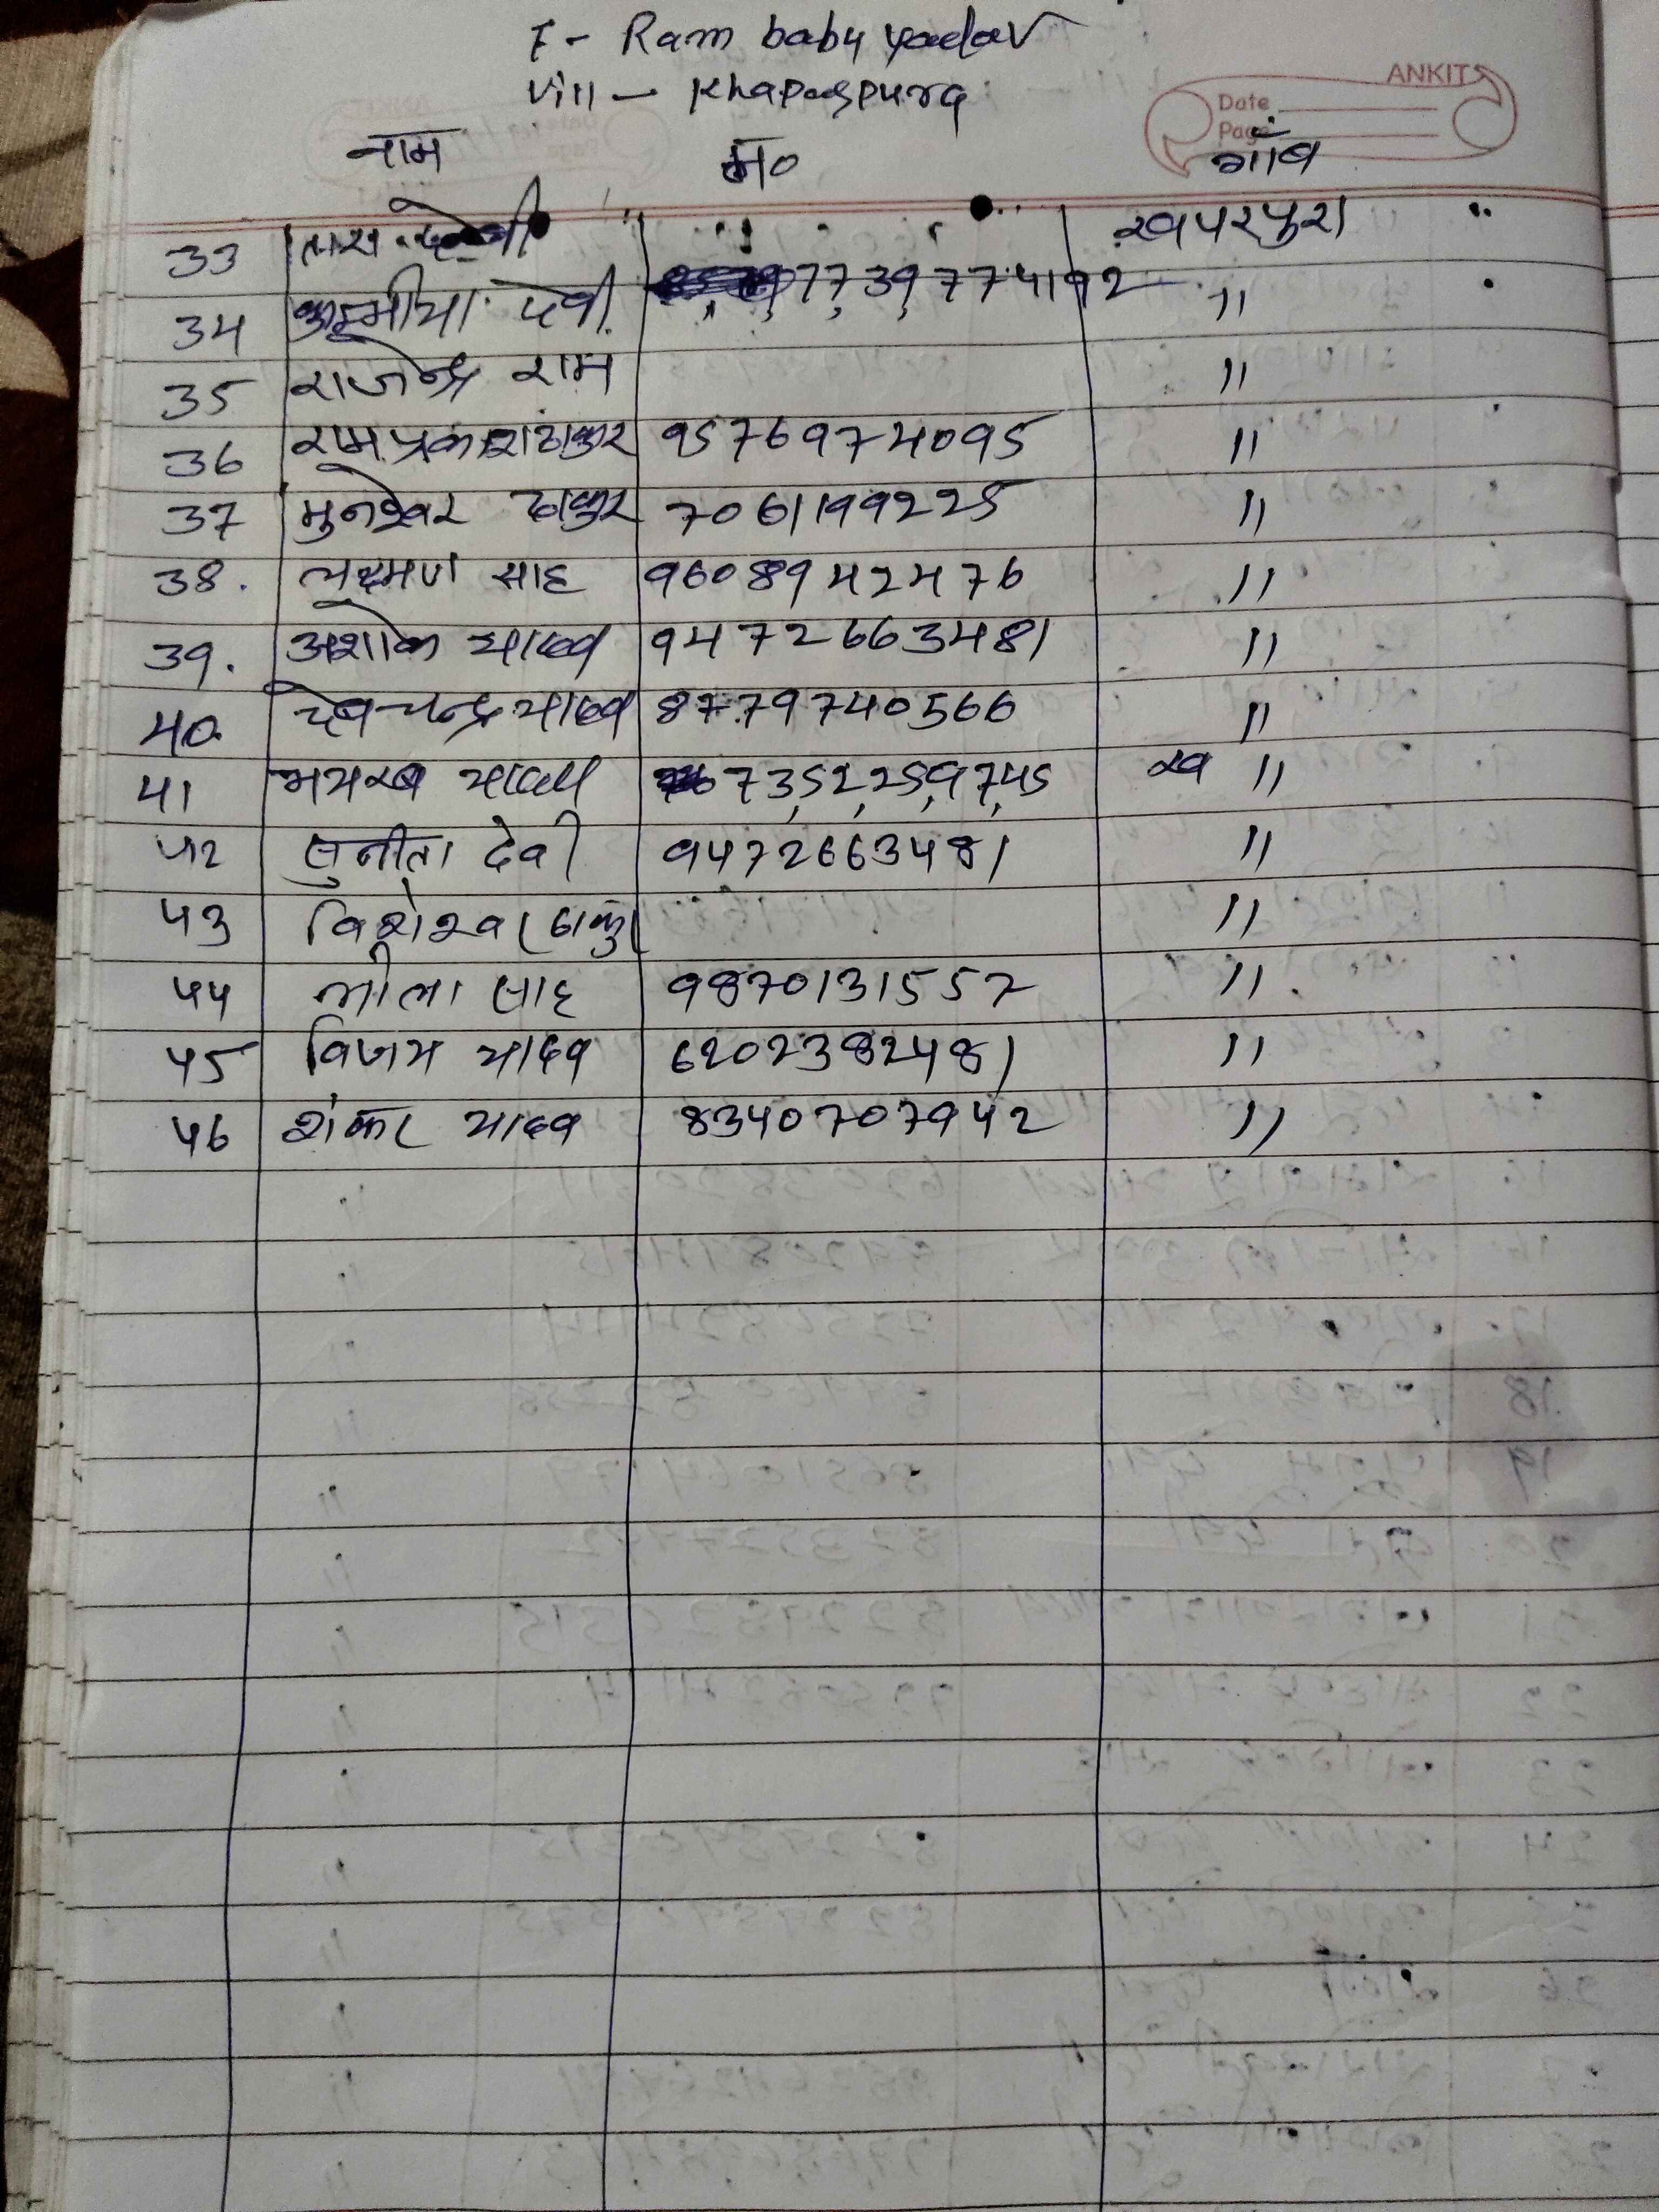 F- Ram babu yadav
Vill - Khaparpura
ANKIT
Date
Page
नाम मो० गांव
33 तारा देवी खपरपुरा
34 देवी 7739774192 "
35 राजेन्द्र राम "
36 राम प्रकाश ठाकुर 9576974095 "
37 मुनेश्वर ठाकुर 7061199225 "
38. लक्ष्मण साह 9608942476 "
39. अशोक यादव 9472663481 "
40 देवचन्द्र यादव 8779740566 "
41 यादव 7352259745 ख "
42 सुनीता देवी 9472663481 "
43 विशेश्वर ठाकुर "
44 भोला साह 9870131557 "
45 विजय यादव 6202382481 "
46 शंकर यादव 8340707942 "